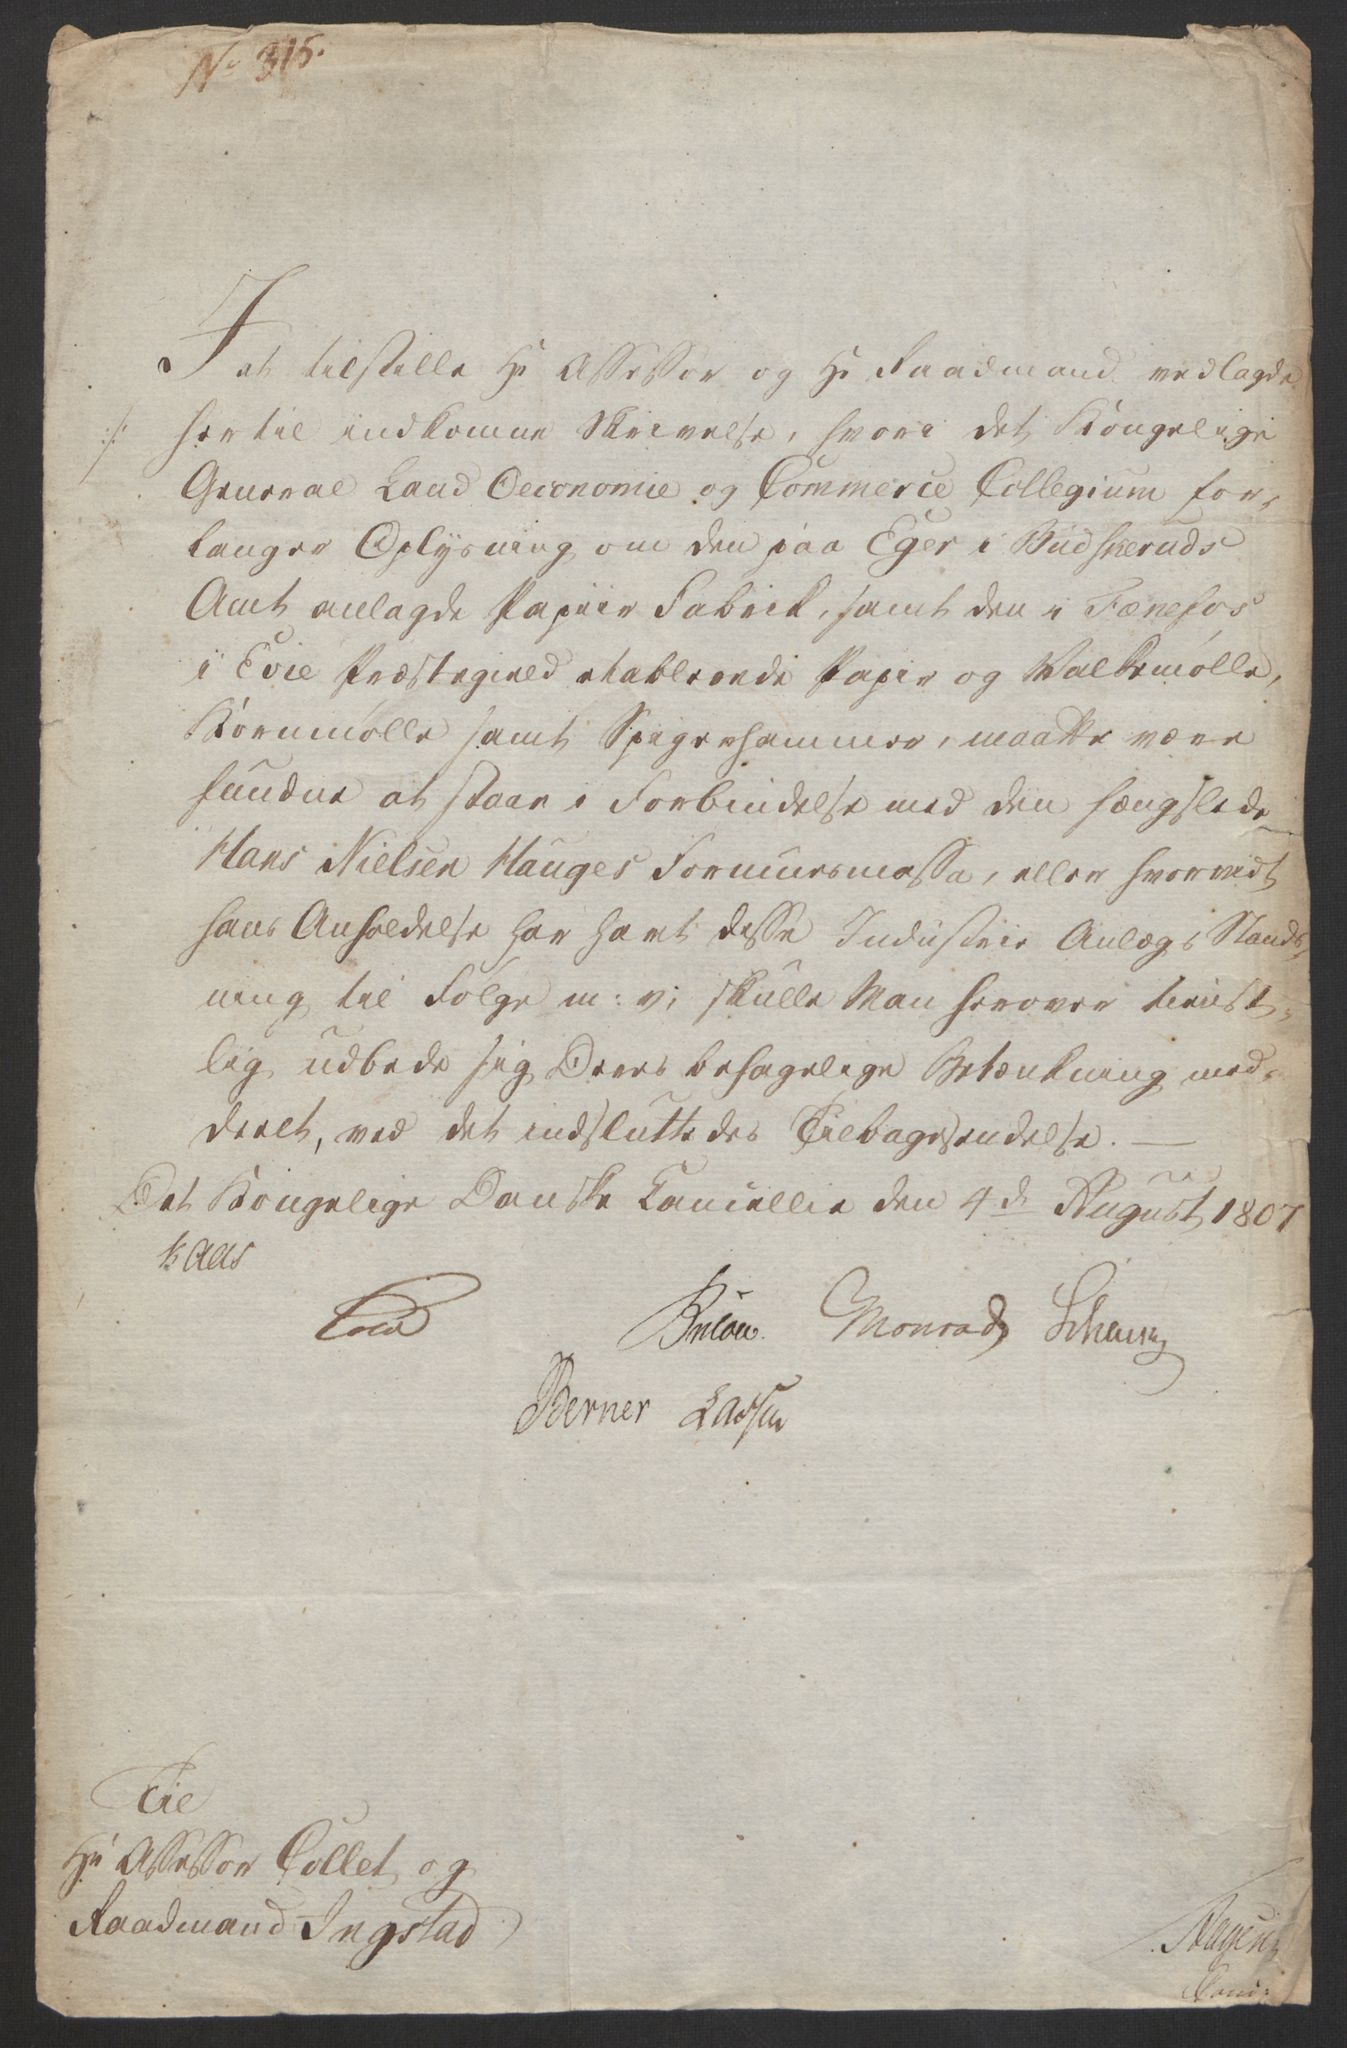 No 315.
I at tilstille Hr Assessor og Hr Raadmand vedlagde
:/: hertil indkomne Skrivelse, hvori det Kongelige
General Land Oeconomie og Commerce Collegium for-
langer Oplysning om den paa Eger i Budskeruds
Amt anlagde Papiir Fabrik, samt den i Fænefos
i Evie Præstegield etablerede Papir og Valkemølle,
Kornmølle samt Spigerhammer, maatte være
fundne at staae i Forbindelse med den fængslede
Hans Nielsen Hauges Formuesmassa, eller hvorvidt
hans Anholdelse har havt disse Industrie Anlægs Stands-
ning til Følge m: v; skulle Man herover tienst-
lig udbede sig Deres behagelige Betænkning med-
deelt, ved det indsluttedes Tilbagesendelse. —
Det Kongelige Danske Cancellie den 4de August 1807
Kaas
Cold Bülow. Monrad Schønn
Berner Lassen
Til
Hr Assessor Collet og
Raadmand Ingstad